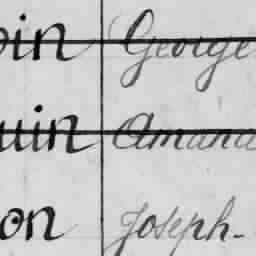 in George
uin Amand
on Joseph-